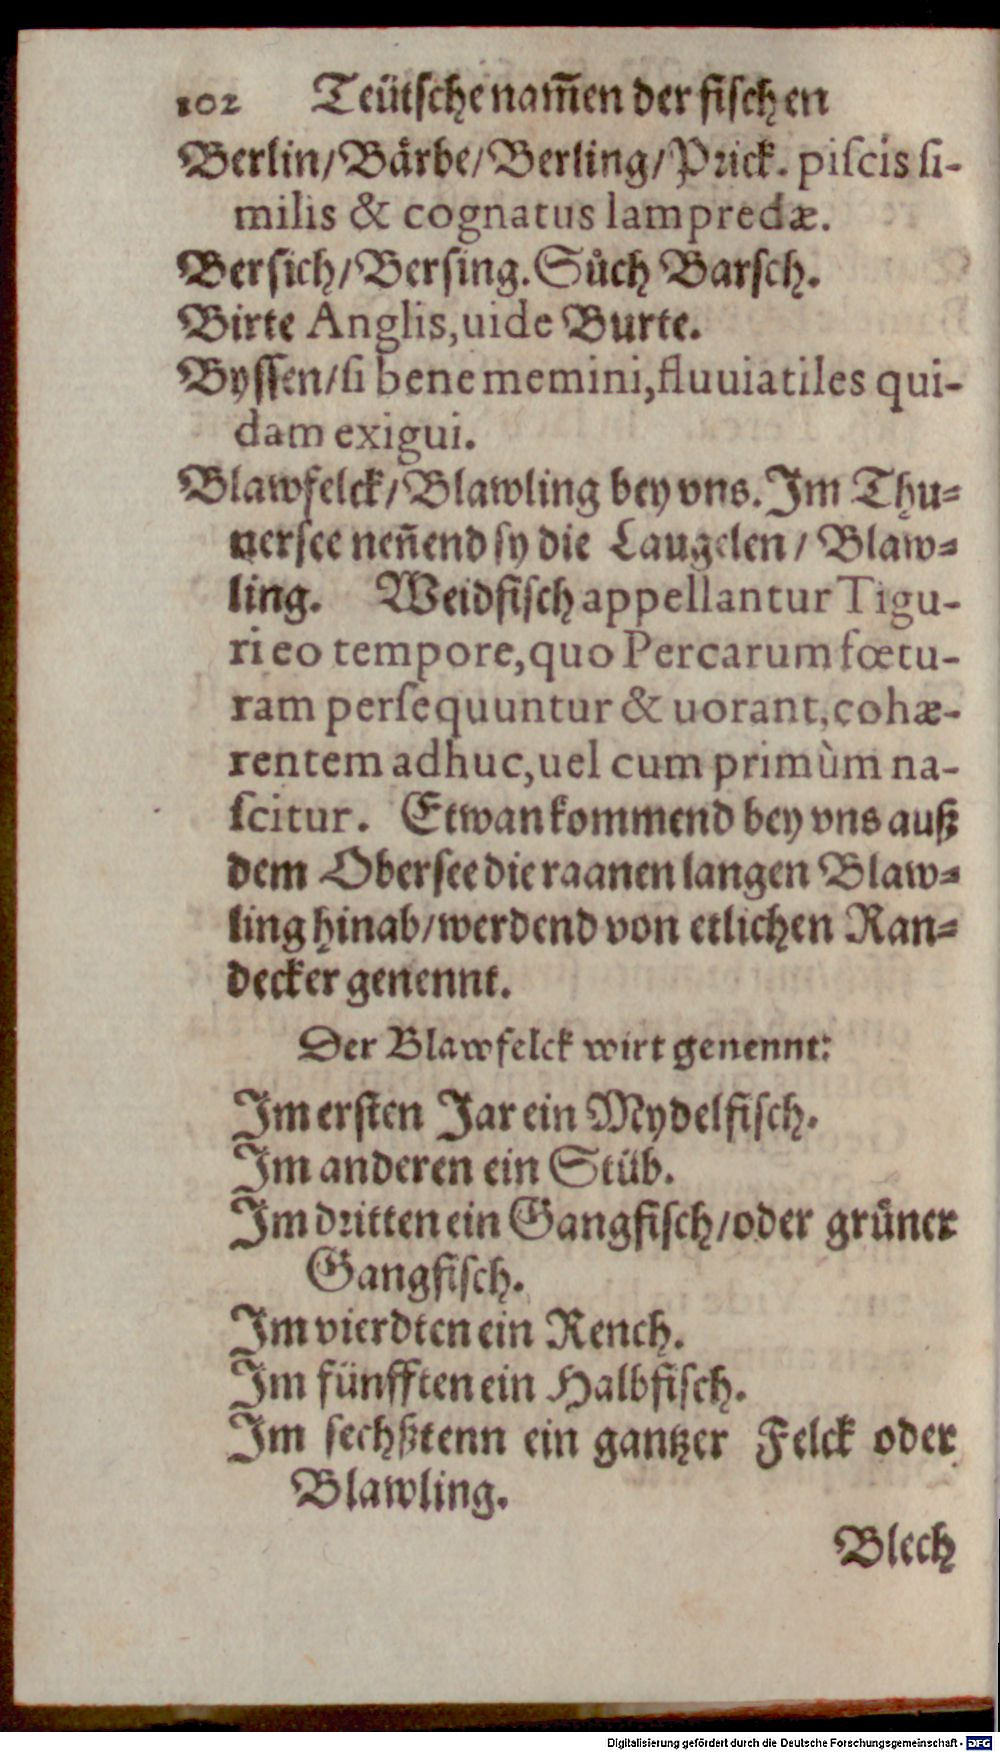 102 Teütsche nam̄en der fischen
Berlin/Bärbe/Berling/Prick. piſcis ſi-
milis & cognatus lampredæ.
Bersich/Bersing. Sůch Barsch.
Birte Anglis, uide Burte.
Byssen/ſi bene memini, fluuiatiles qui-
dam exigui.
Blawfelck/Blawling bey vns. Im Thu⸗
nersee neñend sy die Laugelen/Blaw⸗
ling. Weidfisch appellantur Tigu-
ri eo tempore, quo Percarum fœtu-
ram perſequuntur & uorant, cohæ-
rentem adhuc, uel cum primùm na-
ſcitur. Etwan kommend bey vns auß
dem Obersee die raanen langen Blaw⸗
ling hinab/werdend von etlichen Ran⸗
decker genennt.
Der Blawfelck wirt genennt:
Im ersten Jar ein Mydelfisch.
Im anderen ein Stüb.
Im dritten ein Gangfisch/oder grüner
Gangfisch.
Im vierdten ein Rench.
Im fünfften ein Halbfisch.
Im sechßtenn ein gantzer Felck oder
Blawling.
Blech
Digitalisierung gefördert durch die Deutsche Forschungsgemeinschaft - DFG